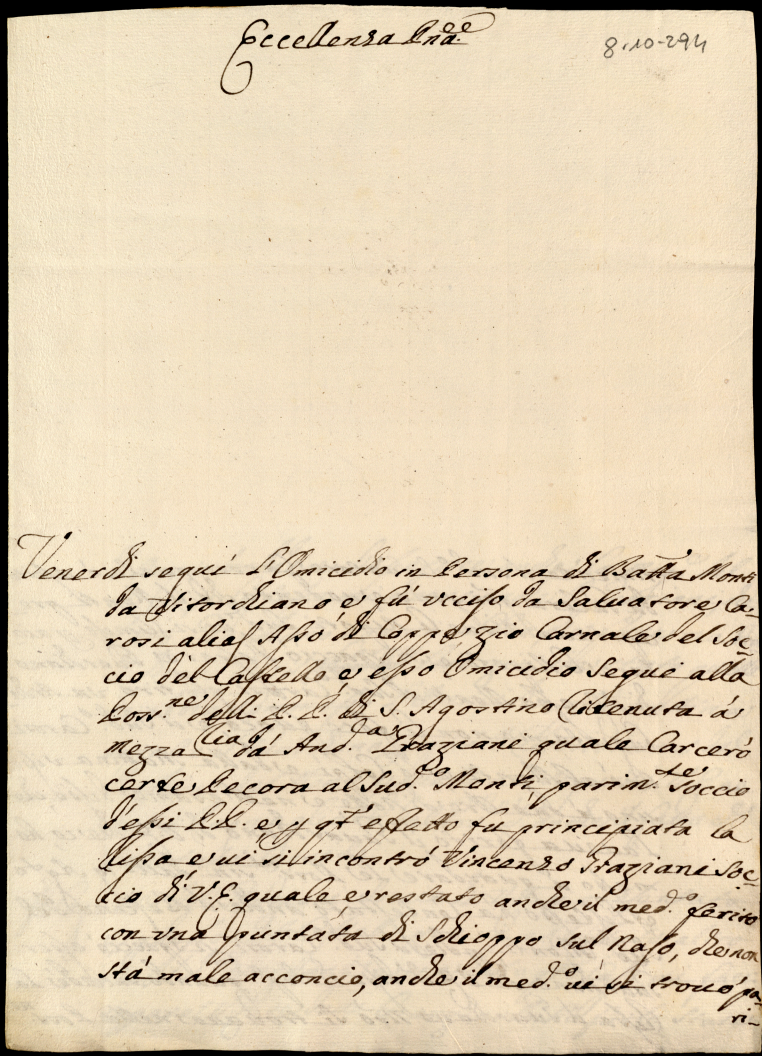 Eccellenza Pňa
8-10-294
Venerdi seguì l'Omicidio in Persona di Batta Monti
da Vitordiano e fù ucciso da Saluatore Ca-
rosi alias Assò di Coppe, zio Carnale del Soc-
cio del Castello, e esso Omicidio Seguì alla
Poss.ne delli P. P. di S. Agostino ritenuta à
mezza da And.a Graziani quale Carcerò
certe Pecora al Sud.o Monti, parim.te Soccio
d'essi P. P. e p qt' effetto fu principiata la
lissa e ui si incontrò Vincenzo Graziani Soc-
cio di V. E. quale e restato anche il med.o ferito
con una puntata di Schioppo sul Naso, che non
stà male acconcio, anche il med.o ui si trouò pa-
ri-